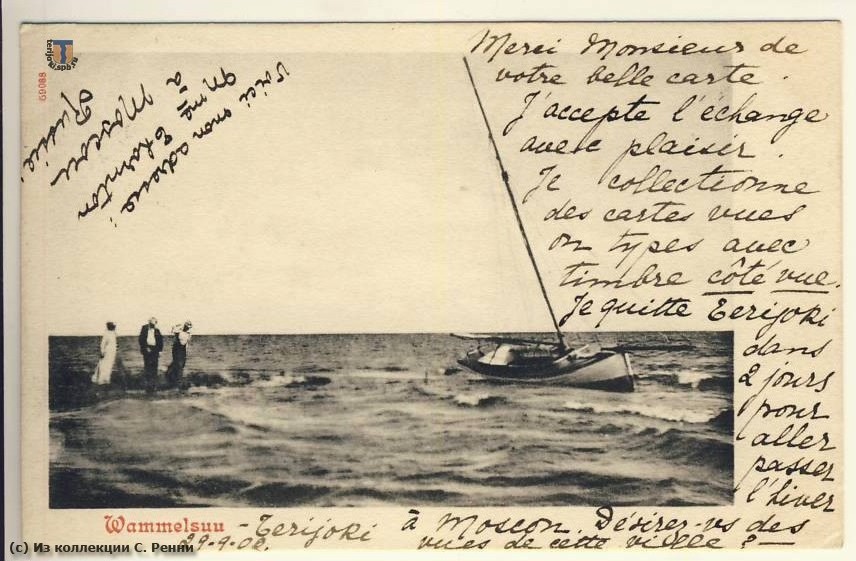 Merci Monsieur de
votre belle carte.
J'accepte l'échange
avec plaisir.
Je collectionne
des cartes vues
ou types avec
timbre côté vue.
Je quitte Terijoki
dans
2 jours
pour
aller
passer
l'hiver
à Moscou. Désirez-vs des
vues de cette ville? —
Voici mon adresse:
Mme
à Moscou
Russie
59088
terijoki.spb.ru
Wammelsuu - Terijoki
29-9-02.
(c) Из коллекции С. Ренни